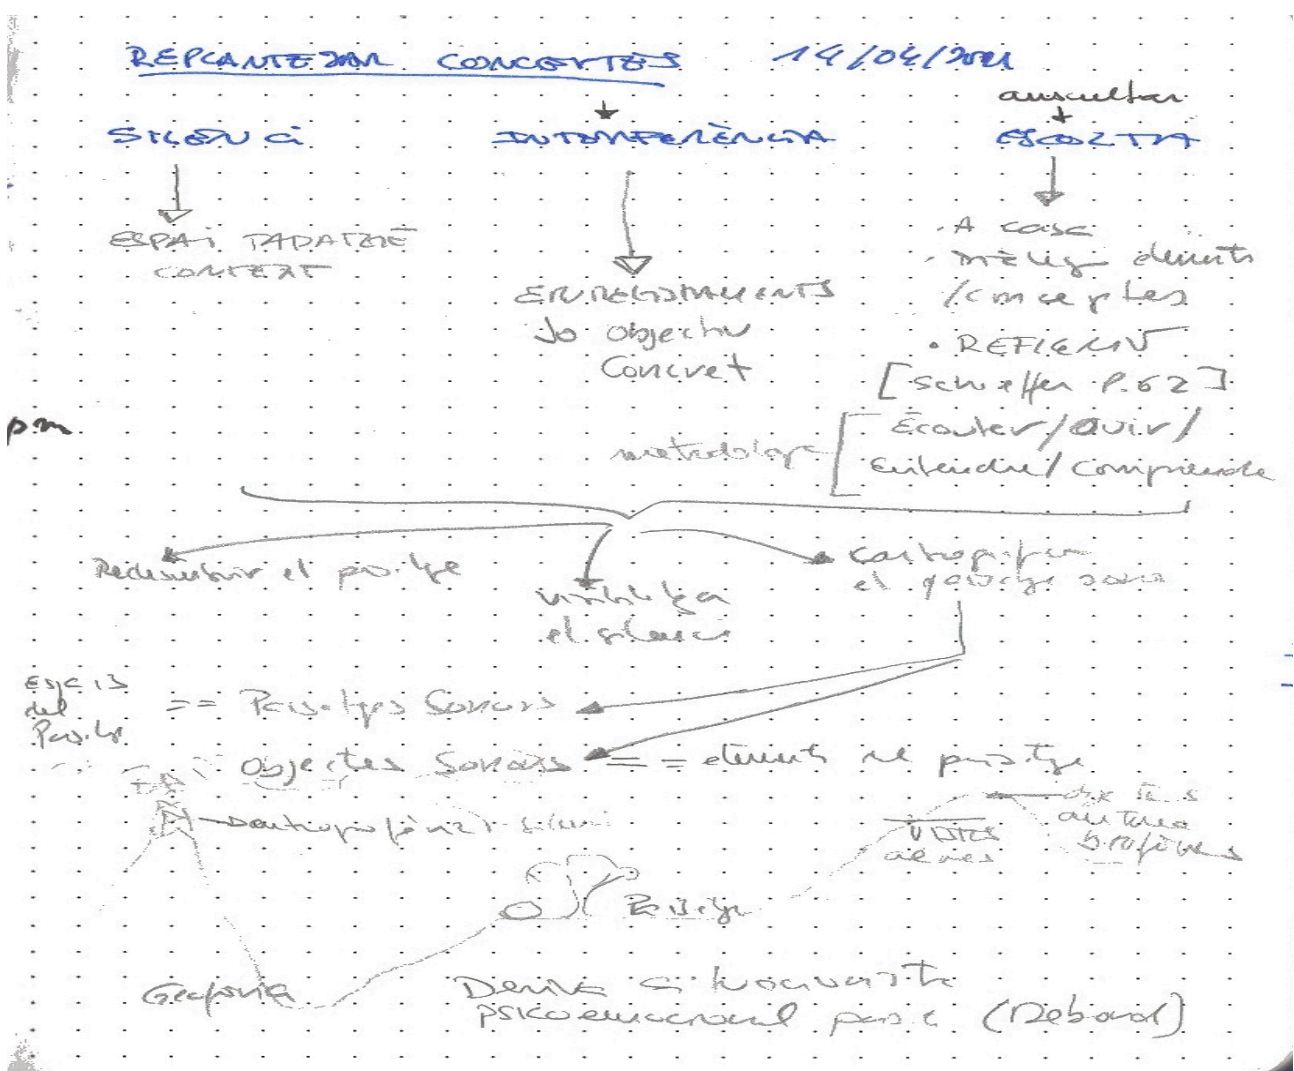 REPLANTEJAR CONCEPTES 14/04/2021
auscultar
SILENCI INTERFERÈNCIA ESCOLTA
ESPAI
CONTEXT
ENREGISTRAMENTS
objectiu
Concret
· A casa
elements
/conceptes
· REFLEXIÓ
[Schaeffer P.62]
pm
metodologia
Écouter/Ouir/
Entendre/Comprendre
Redescobrir el paisatge
visibilitzar
el silenci
cartografiar
el paisatge sonor
Espais
del
Paisatge
== Paisatges Sonors
objectes Sonors == elements del paisatge
antropofònic
biofònies
Paisatge
Geofonia
Deriva situacionista
psicoemocional (Debord)